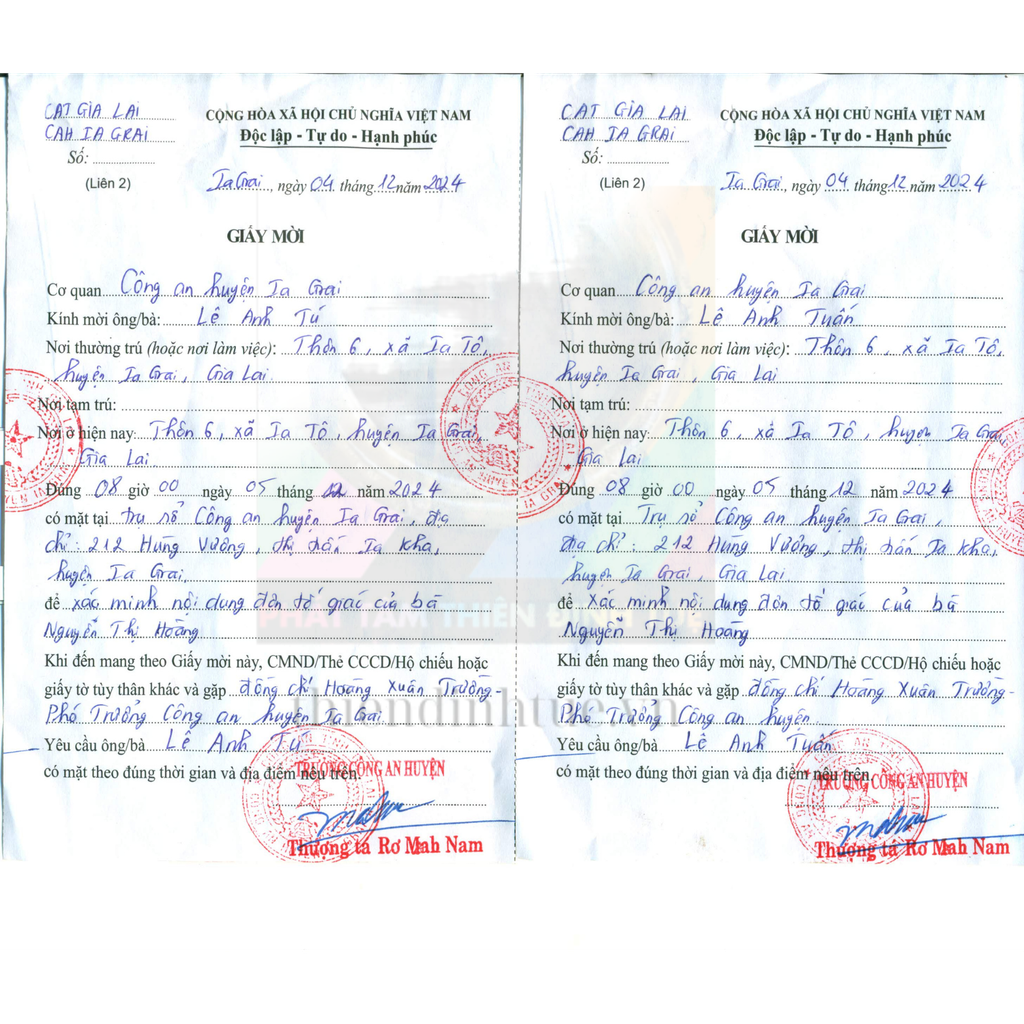 CAT GIA LAI
CAH IA GRAI
Số: ....................
(Liên 2)
CỘNG HÒA XÃ HỘI CHỦ NGHĨA VIỆT NAM
Độc lập - Tự do - Hạnh phúc
Ia Grai, ngày 04 tháng 12 năm 2024
GIẤY MỜI
Cơ quan Công an huyện Ia Grai
Kính mời ông/bà: Lê Anh Tú
Nơi thường trú (hoặc nơi làm việc): Thôn 6, xã Ia Tô,
huyện Ia Grai, Gia Lai.
Nơi tạm trú:
Nơi ở hiện nay: Thôn 6, xã Ia Tô, huyện Ia Grai,
Gia Lai.
Đúng 08 giờ 00 ngày 05 tháng 12 năm 2024
có mặt tại trụ sở Công an huyện Ia Grai, địa
chỉ: 212 Hùng Vương, thị trấn Ia Kha,
huyện Ia Grai,
để xác minh nội dung đơn tố giác của bà
Nguyễn Thị Hoàng
Khi đến mang theo Giấy mời này, CMND/Thẻ CCCD/Hộ chiếu hoặc
giấy tờ tùy thân khác và gặp đồng chí Hoàng Xuân Trường -
Phó Trưởng Công an huyện Ia Grai
Yêu cầu ông/bà Lê Anh Tú
có mặt theo đúng thời gian và địa điểm nêu trên.
TRƯỞNG CÔNG AN HUYỆN
Thượng tá Rơ Mah Nam
CAT GIA LAI
CAH IA GRAI
Số: ....................
(Liên 2)
CỘNG HÒA XÃ HỘI CHỦ NGHĨA VIỆT NAM
Độc lập - Tự do - Hạnh phúc
Ia Grai, ngày 04 tháng 12 năm 2024
GIẤY MỜI
Cơ quan Công an huyện Ia Grai
Kính mời ông/bà: Lê Anh Tuấn
Nơi thường trú (hoặc nơi làm việc): Thôn 6, xã Ia Tô,
huyện Ia Grai, Gia Lai
Nơi tạm trú:
Nơi ở hiện nay: Thôn 6, xã Ia Tô, huyện Ia Grai,
Gia Lai
Đúng 08 giờ 00 ngày 05 tháng 12 năm 2024
có mặt tại Trụ sở Công an huyện Ia Grai,
địa chỉ: 212 Hùng Vương, thị trấn Ia Kha,
huyện Ia Grai, Gia Lai
để xác minh nội dung đơn tố giác của bà
Nguyễn Thị Hoàng
Khi đến mang theo Giấy mời này, CMND/Thẻ CCCD/Hộ chiếu hoặc
giấy tờ tùy thân khác và gặp đồng chí Hoàng Xuân Trường -
Phó Trưởng Công an huyện
Yêu cầu ông/bà Lê Anh Tuấn
có mặt theo đúng thời gian và địa điểm nêu trên.
TRƯỞNG CÔNG AN HUYỆN
Thượng tá Rơ Mah Nam
PHÁT TÂM THIỀN ĐỊNH TUỆ
thiendinhtue.vn